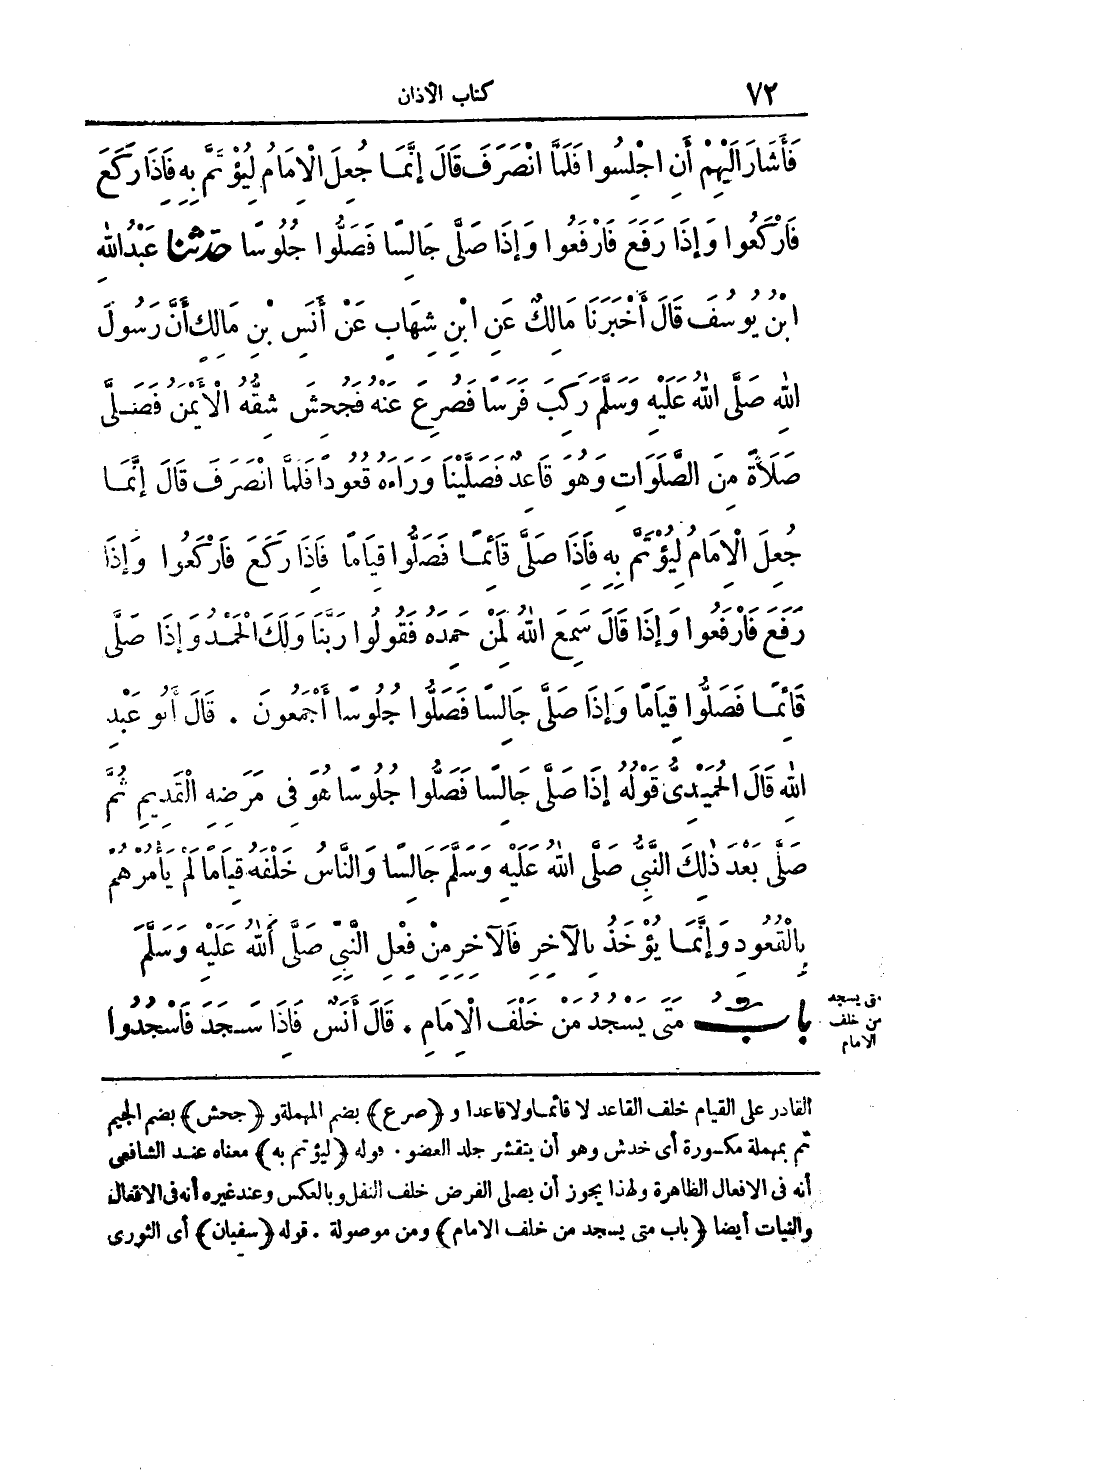 ٧٢
كتاب الأذان
فَأَشَارَ اِلَيْهِمْ أَنِ اجْلِسُوا فَلَمَّا انْصَرَفَ قَالَ إنَّمَا جُعِلَ الْاِمَامُ لِيُؤْتَمَّ بِهِ فَاِذَا رَكَعَ
فَارْكَعُوا وَإِذَا رَفَعَ فَارْفَعُوا وَإِذَا صَلَّى جَالِسًا فَصَلُّوا جُلُوسًا حدثنا عَبْدُ اللهِ
ابْنُ يُوسُفَ قَالَ أَخْبَرَنَا مَالِكٌ عَنِ ابْنِ شِهَابٍ عَنْ أَنَسِ بْنِ مَالِكٍ أَنَّ رَسُولَ
اللهِ صَلَّى اللهُ عَلَيْهِ وَسَلَّمَ رَكِبَ فَرَسًا فَصُرِعَ عَنْهُ فَجُحِشَ شِقُّهُ الْأَيْمَنُ فَصَلَّى
صَلَاةً مِنَ الصَّلَوَاتِ وَهُوَ قَاعِدٌ فَصَلَّيْنَا وَرَاءَهُ قُعُودًا فَلَمَّا انْصَرَفَ قَالَ إنَّمَا
جُعِلَ الْاِمَامُ لِيُؤْتَمَّ بِهِ فَاِذَا صَلَّى قَائِمًا فَصَلُّوا قِيَامًا فَاِذَا رَكَعَ فَارْكَعُوا وَإِذَا
رَفَعَ فَارْفَعُوا وَإِذَا قَالَ سَمِعَ اللهُ لِمَنْ حَمِدَهُ فَقُولُوا رَبَّنَا وَلَكَ الْحَمْدُ وَإِذَا صَلَّى
قَائِمًا فَصَلُّوا قِيَامًا وَإِذَا صَلَّى جَالِسًا فَصَلُّوا جُلُوسًا أَجْمَعُونَ . قَالَ أَبُو عَبْدِ
اللهِ قَالَ الْحُمَيْدِىُّ قَوْلُهُ إذَا صَلَّى جَالِسًا فَصَلُّوا جُلُوسًا هُوَ فِى مَرَضِهِ الْقَدِيمِ ثُمَّ
صَلَّى بَعْدَ ذٰلِكَ النَّبِىُّ صَلَّى اللهُ عَلَيْهِ وَسَلَّمَ جَالِسًا وَالنَّاسُ خَلْفَهُ قِيَامًا لَمْ يَأْمُرْهُمْ
بِالْقُعُودِ وَإِنَّمَا يُؤْخَذُ بِالْآخِرِ فَالْآخِرِ مِنْ فِعْلِ النَّبِىِّ صَلَّى اللهُ عَلَيْهِ وَسَلَّمَ
بابٌ مَتَى يَسْجُدُ مَنْ خَلْفَ الْاِمَامِ . قَالَ أَنَسٌ فَاِذَا سَجَدَ فَاسْجُدُوا
متى يسجد
من خلف
الامام
القادر على القيام خلف القاعد لا قائما ولا قاعدا و (صرع) بضم المهملة و (جحش) بضم الجيم
ثم بمهملة مكسورة أى خدش وهو أن يتقشر جلد العضو . قوله (ليؤتم به) معناه عند الشافعى
أنه فى الافعال الظاهرة ولهذا يجوز أن يصلى الفرض خلف النفل وبالعكس وعند غيره أنه فى الافعال
والنيات أيضا (باب متى يسجد من خلف الامام) ومن موصولة . قوله (سفيان) أى الثورى